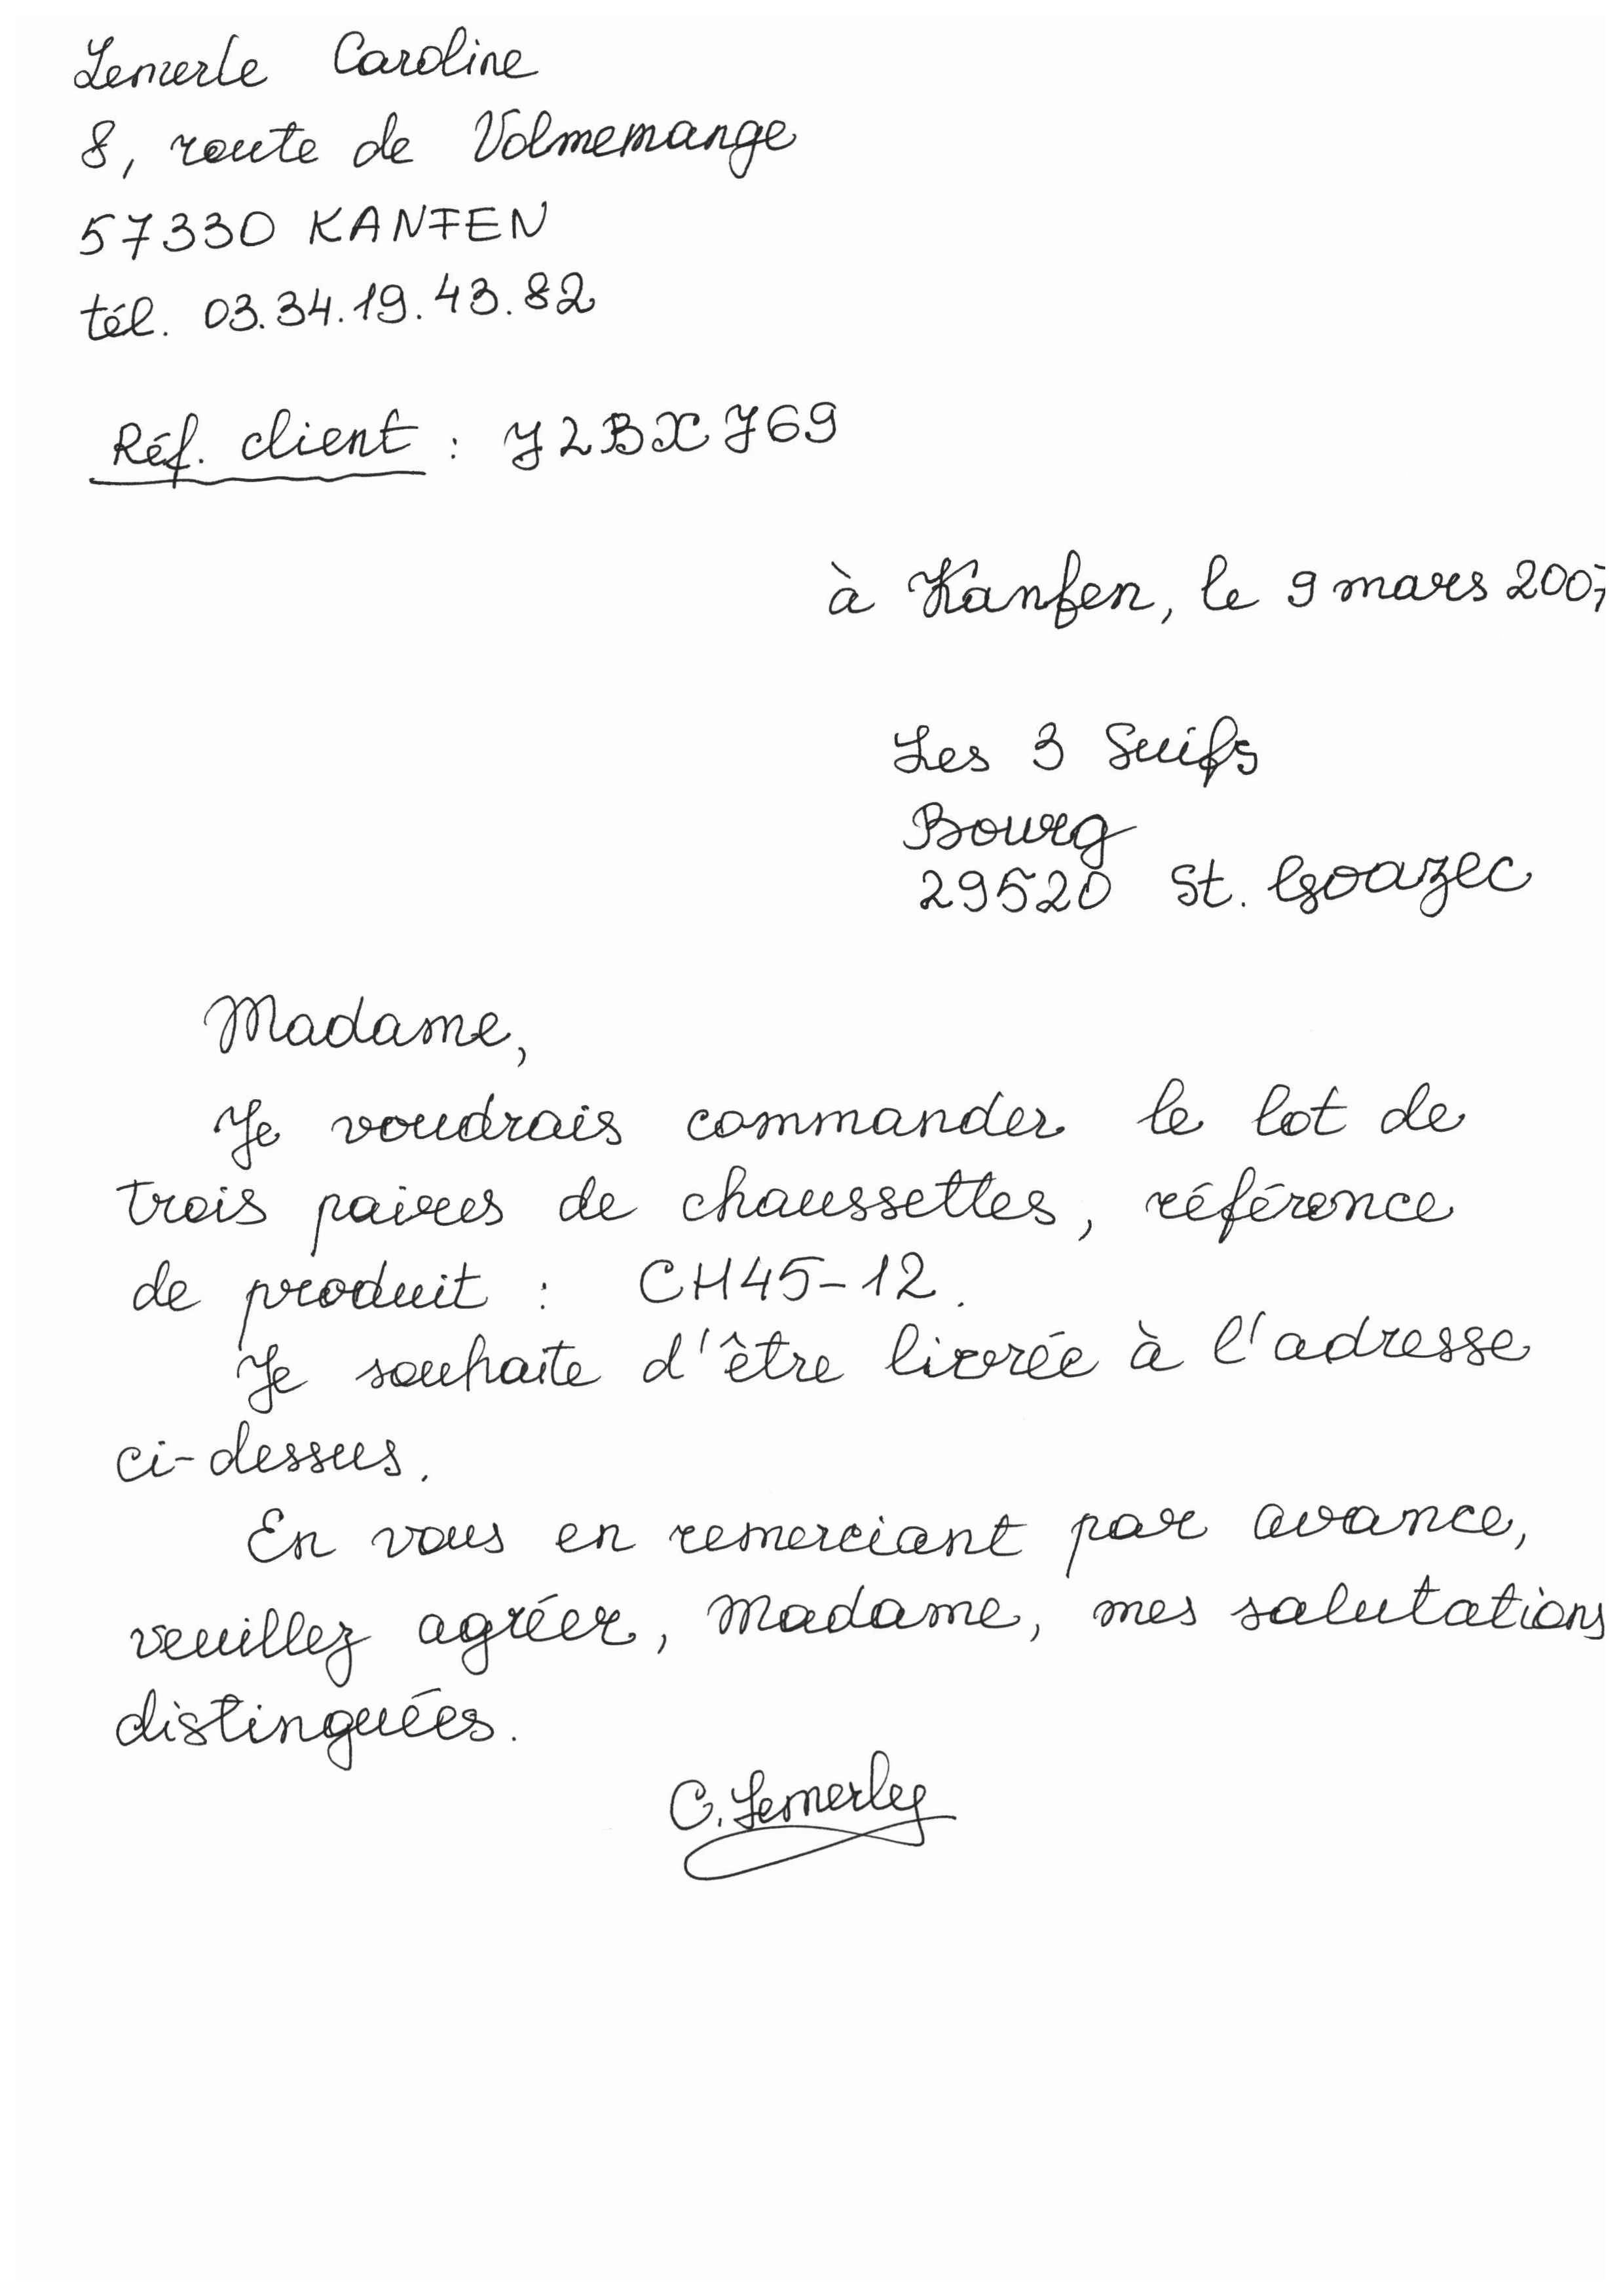 Lemerle Caroline
8, route de Volmemange
57330 KANFEN
tél. 03.34.19.43.82
Réf. client :
à Kanfen, le 9 mars 2007
Les 3 Suifs
Bourg
29520 St. Goazec
Madame,
Je voudrais commander le lot de
trois paires de chaussettes, référence
de produit : CH45-12.
Je souhaite d'être livrée à l'adresse
ci-dessus.
En vous en remerciant par avance,
veuillez agréer, Madame, mes salutations
distinguées.
C. Lemerle